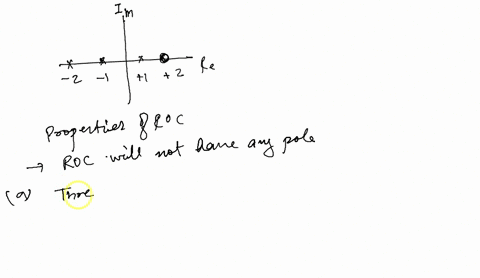 Im
-2 -1 +1 +2 Re
Properties of ROC
→ ROC will not have any pole
(a) Time